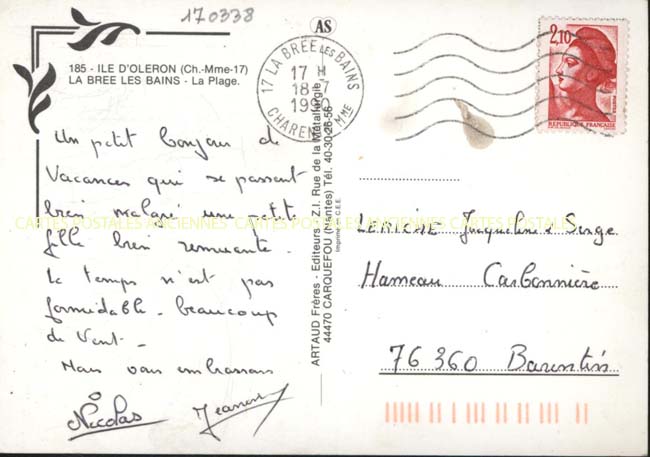 170338
AS
185 - ILE D'OLERON (Ch.-Mme-17)
LA BREE LES BAINS - La Plage.
17 LA BRÉE LES BAINS
17 H
18-7
1990
CHARENTE MME
2,10
REPUBLIQUE FRANÇAISE
Un petit bonjour de
Vacances qui se passent
bien malgré une petite
fille bien remuante.
Le temps n'est pas
formidable. beaucoup
de Vent -
Nous vous embrassons
Nicolas
ARTAUD Frères - Editeurs - Z.I. Rue de la Métallurgie
44470 CARQUEFOU (Nantes) Tél. 40-30-26-56
Imprimé en C.E.E.
CARTES POSTALES ANCIENNES CARTES POSTALES
Jacqueline & Serge
Hameau Carbonnière
76 360 Barentin